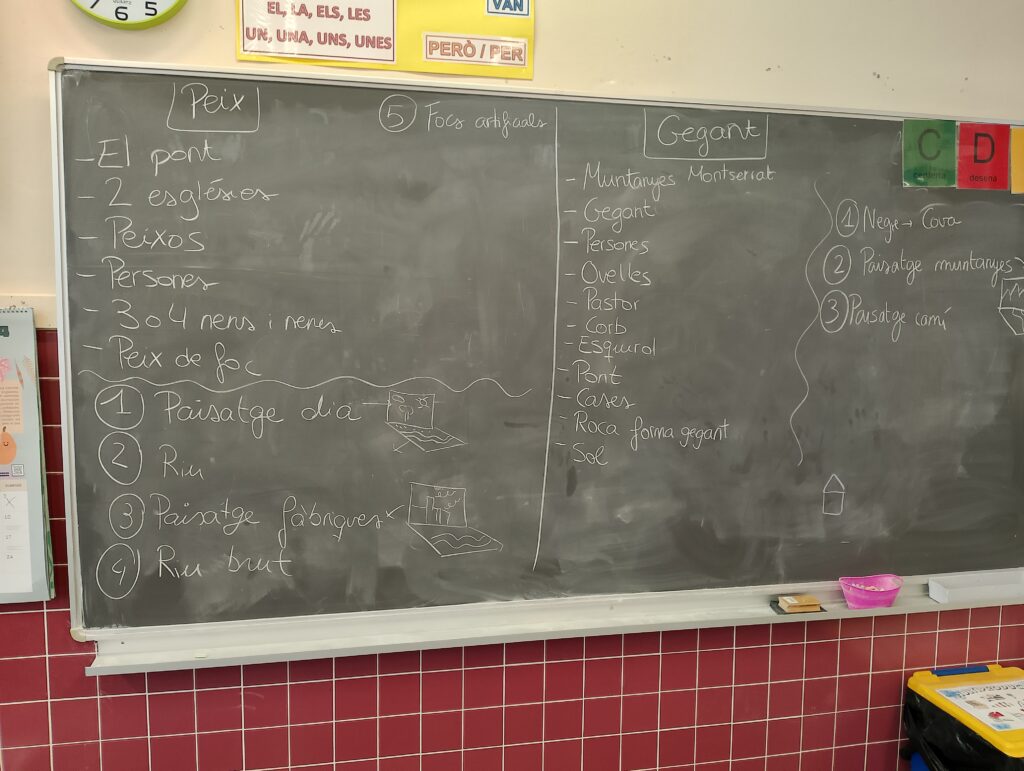 6
5
EL, LA, ELS, LES
UN, UNA, UNS, UNES
VAN
PERÒ / PER
Peix
- El pont
- 2 esglésies
- Peixos
- Persones
- 3 o 4 nens i nenes
- Peix de foc
1 Paisatge dia
2 Riu
3 Paisatge fàbriques
4 Riu brut
5 Focs artificials
Gegant
- Muntanyes Montserrat
- Gegant
- Persones
- Ovelles
- Pastor
- Corb
- Esquirol
- Pont
- Cases
- Roca forma gegant
- Sol
1 Negre → Cova
2 Paisatge muntanyes
3 Paisatge camí
C
centena
D
desena